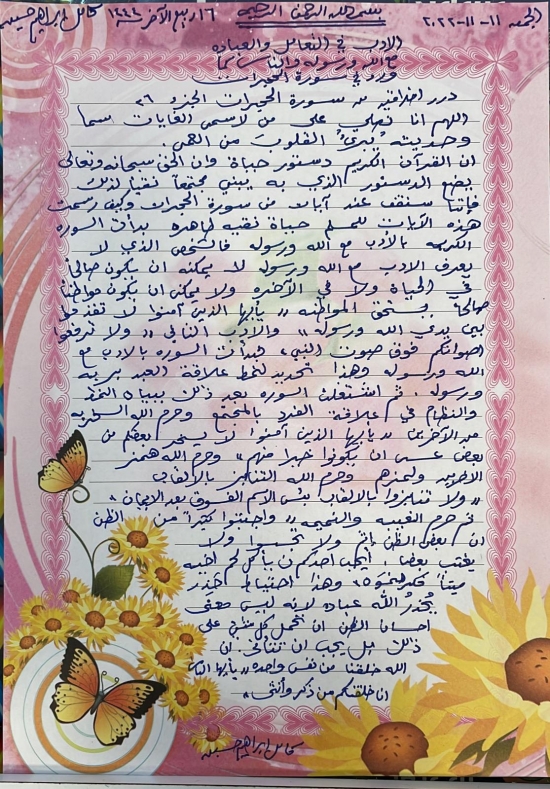 بسم الله الرحمن الرحيم
الجمعة ١١-١١-٢٠٢٢
١٦ ربيع الآخر ١٤٤٤ كامل ابراهيم حسين
الادب في التعامل والعباده
مع الله ورسوله والناس كما
ورد في سورة الحجرات
درر اخلاقيه من سورة الحجرات الجزء ٢٦
اللهم انا نصلي على من لأسمى الغايات سما
وحديثه يُبرئُ القلوب من العمى
ان القرآن الكريم دستور حياة وان الحق سبحانه وتعالى
يضع الدستور الذي به يبني مجتمعاً نقيا لذلك
فإننا سنقف عند آيات من سورة الحجرات وكيف رسمت
هذه الآيات للمسلم حياة نقيه طاهره بدأت السوره
الكريمه بالأدب مع الله ورسوله فالشخص الذي لا
يعرف الادب مع الله ورسوله لا يمكنه ان يكون صالحاً
في الحياة ولا في الآخره ولا يمكن ان يكون مواطناً
صالحاً يستحق المواطنه ,, يأيها الذين آمنوا لا تقدموا
بين يدي الله ورسوله ,, والادب الثاني ,, ولا ترفعوا
اصواتكم فوق صوت النبي ,, فبدأت السوره بالادب مع
الله ورسوله وهذا تحديد لخط علاقة العبد بربه
ورسوله . ثم اشتغلت السوره بعد ذلك ببيان الخط
والنظام في علاقة الفرد بالمجتمع وحرم الله السخريه
من الآخرين ,, يأيها الذين آمنوا لا يسخر بعضكم من
بعض عسى ان يكونوا خيرا منهم ,, وحرم الله همز
الآخرين ولمزهم وحرم الله التنابز بالالقاب
,, ولا تنابزوا بالالقاب بئس الاسم الفسوق بعد الايمان ,,
ثم حرم الغيبه والنميمه ,, واجتنبوا كثيراً من الظن
ان بعض الظن إثم ولا تجسسوا ولا
يغتب بعضكم بعضا . أيحب احدكم ان يأكل لحم اخيه
ميتاً فكرهتموه ,, وهذا احتياط حذر
يُحذرُ الله عباده لانه ليس معنى
احسان الظن ان نحمل كل شيء على
ذلك بل يجب ان نتأنى . ان
الله خلقنا من نفس واحده ,, يأيها الناس
انا خلقناكم من ذكر وأنثى ,,
كامل ابراهيم حسين